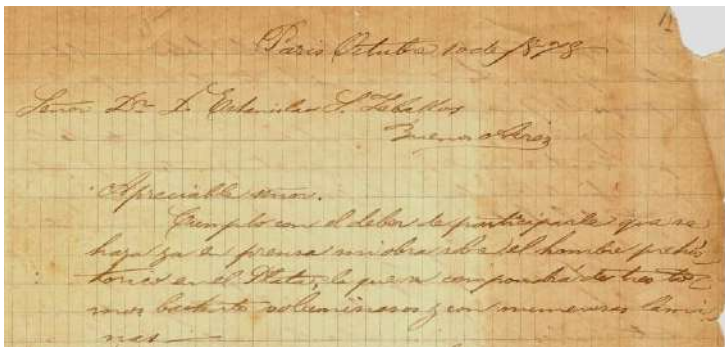 Paris Octubre 10 de 1878
Señor Dr. D. Estanislao S. Zeballos
Buenos Aires
Apreciable señor.
Cumplo con el deber de participarle que se
halla ya en prensa mi obra sobre el hombre prehis
torico en el Plata, la que se compondrá de tres to-
mos bastante voluminosos y con numerosas lami
nas —